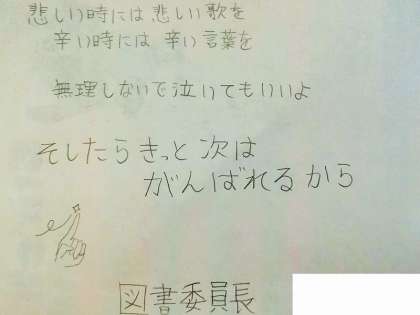 悲しい時には悲しい歌を
辛い時には辛い言葉を
無理しないで泣いてもいいよ
そしたらきっと次は
がんばれるから
図書委員長